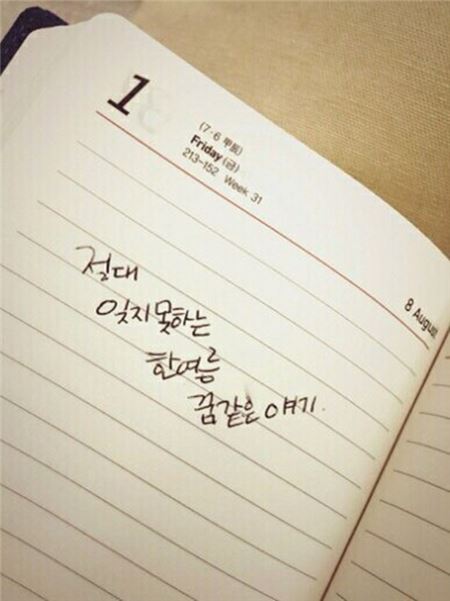 1
(7·6 甲辰)
Friday (금)
213-152 Week 31
8 August
절대
잊지못하는
한여름
꿈같은 얘기.